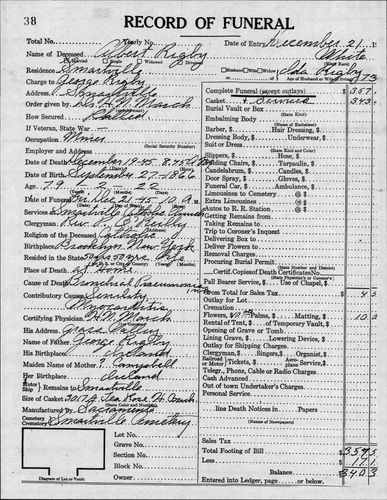 38 RECORD OF FUNERAL
Total No. Yearly No. Date of Entry December 21
Name of Deceased Albert Rigby White
Married Single Widowed Divorced (What Race)
Residence Smartville Husband Wife Widow Ida Rigby 73
Charge to George Rigby
Address Smartville
Order given by Dr. H. M.
How Secured Called
If Veteran, State War
Occupation Miner
(Social Security Number)
Employer and Address
Date of Death December 19-45 8:45
Date of Birth September 27-1866
Age 79 2 22
(Years) (Months) (Days)
Date of Funeral Dec 21 45 10 a m
Services at Smartville Catholic Church
Clergyman Rev.
Religion of the Deceased Catholic
Birthplace Brooklyn New York
Resided in the State
Place of Death at Home
Cause of Death Bronchial Pneumonia
Contributory Causes Senility
Myocarditis
Certifying Physician H. M.
His Address Grass Valley
Name of Father George Rigby
His Birthplace Ireland
Maiden Name of Mother Campbell
Her Birthplace Ireland
Motor Ship Remains to Smartville
Size of Casket
(State Color and Number)
Manufactured by Sacramento
Cemetery Smartville Cemetery
Lot No.
Grave No.
Section No.
Block No.
Owner
Diagram of Lot or Vault
Complete Funeral (except outlays) $ 357
Casket + Service 343
Burial Vault or Box
Embalming Body
(Name of Embalmer)
Barber, $ Hair Dressing, $
Dressing Body, $ Underwear, $
Suit or Dress
Slippers, $ Hose, $
Folding Chairs, $ Tarpaulin, $
Candelabrum, $ Candles, $
Door Spray, $ Gloves, $
Funeral Car, $ Ambulance, $
Limousines to Cemetery @ $
Extra Limousines @ $
Autos to R. R. Station @ $
Getting Remains from
Taking Remains to
Trip to Coroner's Inquest
Delivering Box to
Deliver Flowers to
Removal Charges
Procuring Burial Permit
(State Number and District)
Certif. Copies of Death Certificate
(State Physician's or Coroner's)
Pall Bearer Service, $ Use of Chapel, $
Gross Total for Sales Tax $
Outlay for Lot
Cremation
Flowers, $ Palms, $ Matting, $ 10 0
Rental of Tent, $ of Temporary Vault, $
Opening of Grave or Tomb
Lining Grave, $ Lowering Device, $
Outlay for Shipping Charges
Clergyman, $ Singers, $ Organist, $
Railroad or Motor Tickets, $ Aeroplane Service, $
Telegr., Phone, Cable or Radio Charges
Cash Advanced
Out of town Undertaker's Charges
Personal Service
line Death Notices in Papers $
(Names of Newspapers)
Sales Tax
Total Footing of Bill $ 357 5
Less $ 17 1
Balance $ 340 3
Entered into Ledger, page or below.